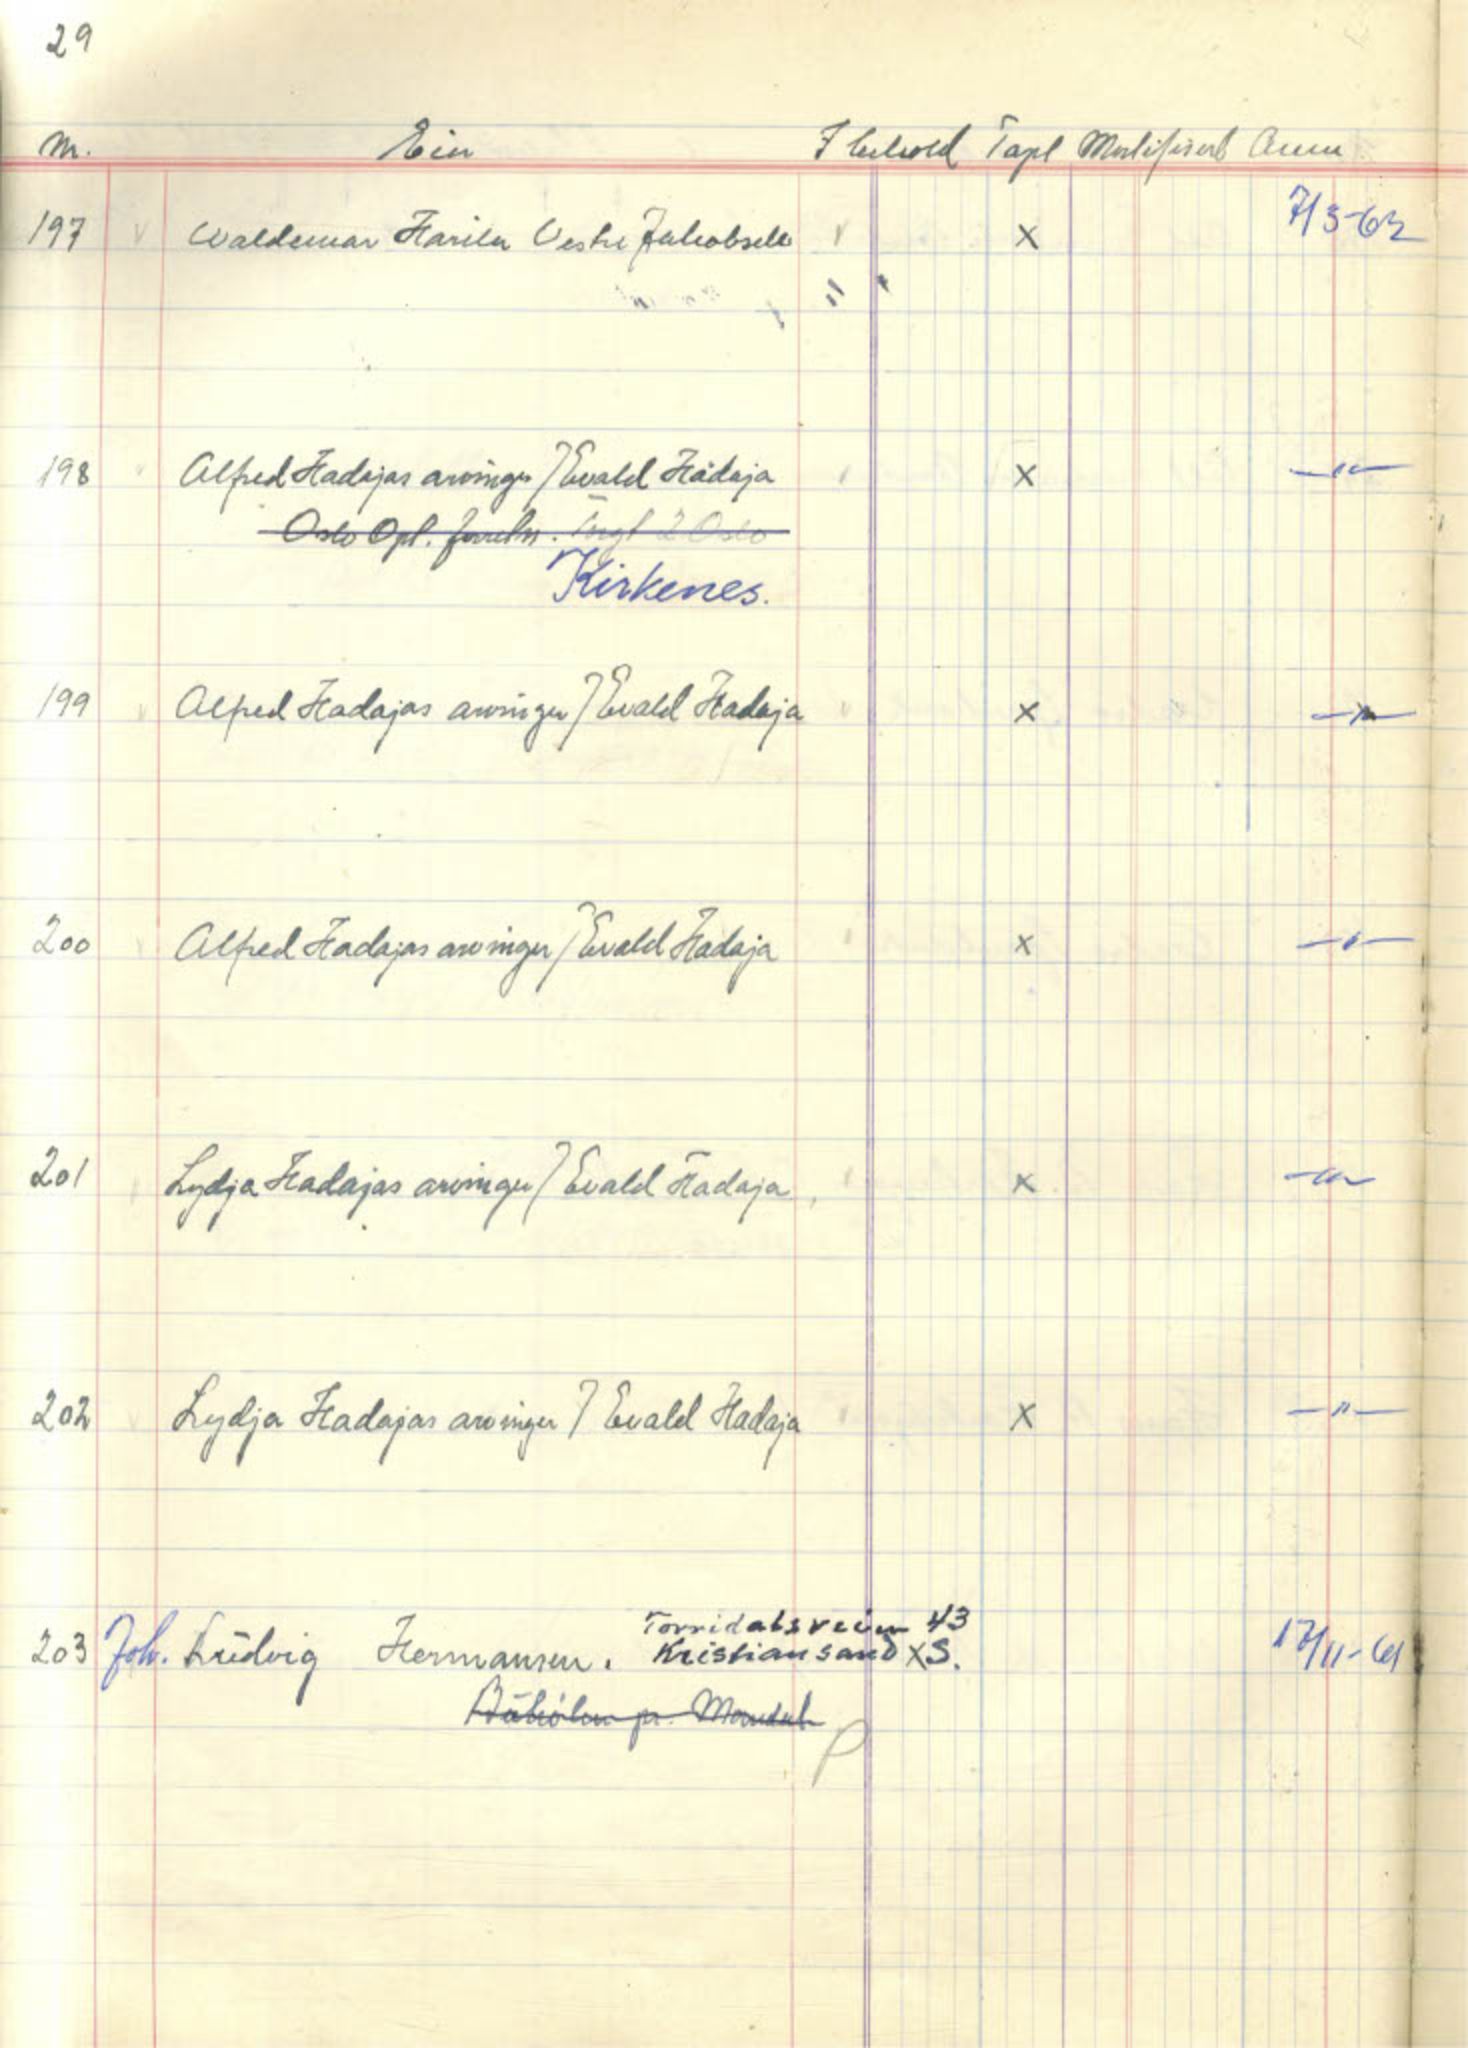 29
Nr. Eier I behold Tapt Mortifisert Anm
197 v Waldemar Harila Vestre Jakobselv v x 7/3-62
198 Alfred Hadajas arvinger / Evald Hadaja x —"—
Oslo Opl. Torgt 2 Oslo
Kirkenes.
199 v Alfred Hadajas arvinger / Evald Hadaja v x —"—
200 v Alfred Hadajas arvinger / Evald Hadaja x —"—
201 Lydja Hadajas arvinger / Evald Hadaja x —"—
202 Lydja Hadajas arvinger / Evald Hadaja x —"—
Torridalsveien 43
203 Joh. Ludvig Hermansen. Kristiansand x S. 17/11-61
pr. Mandal